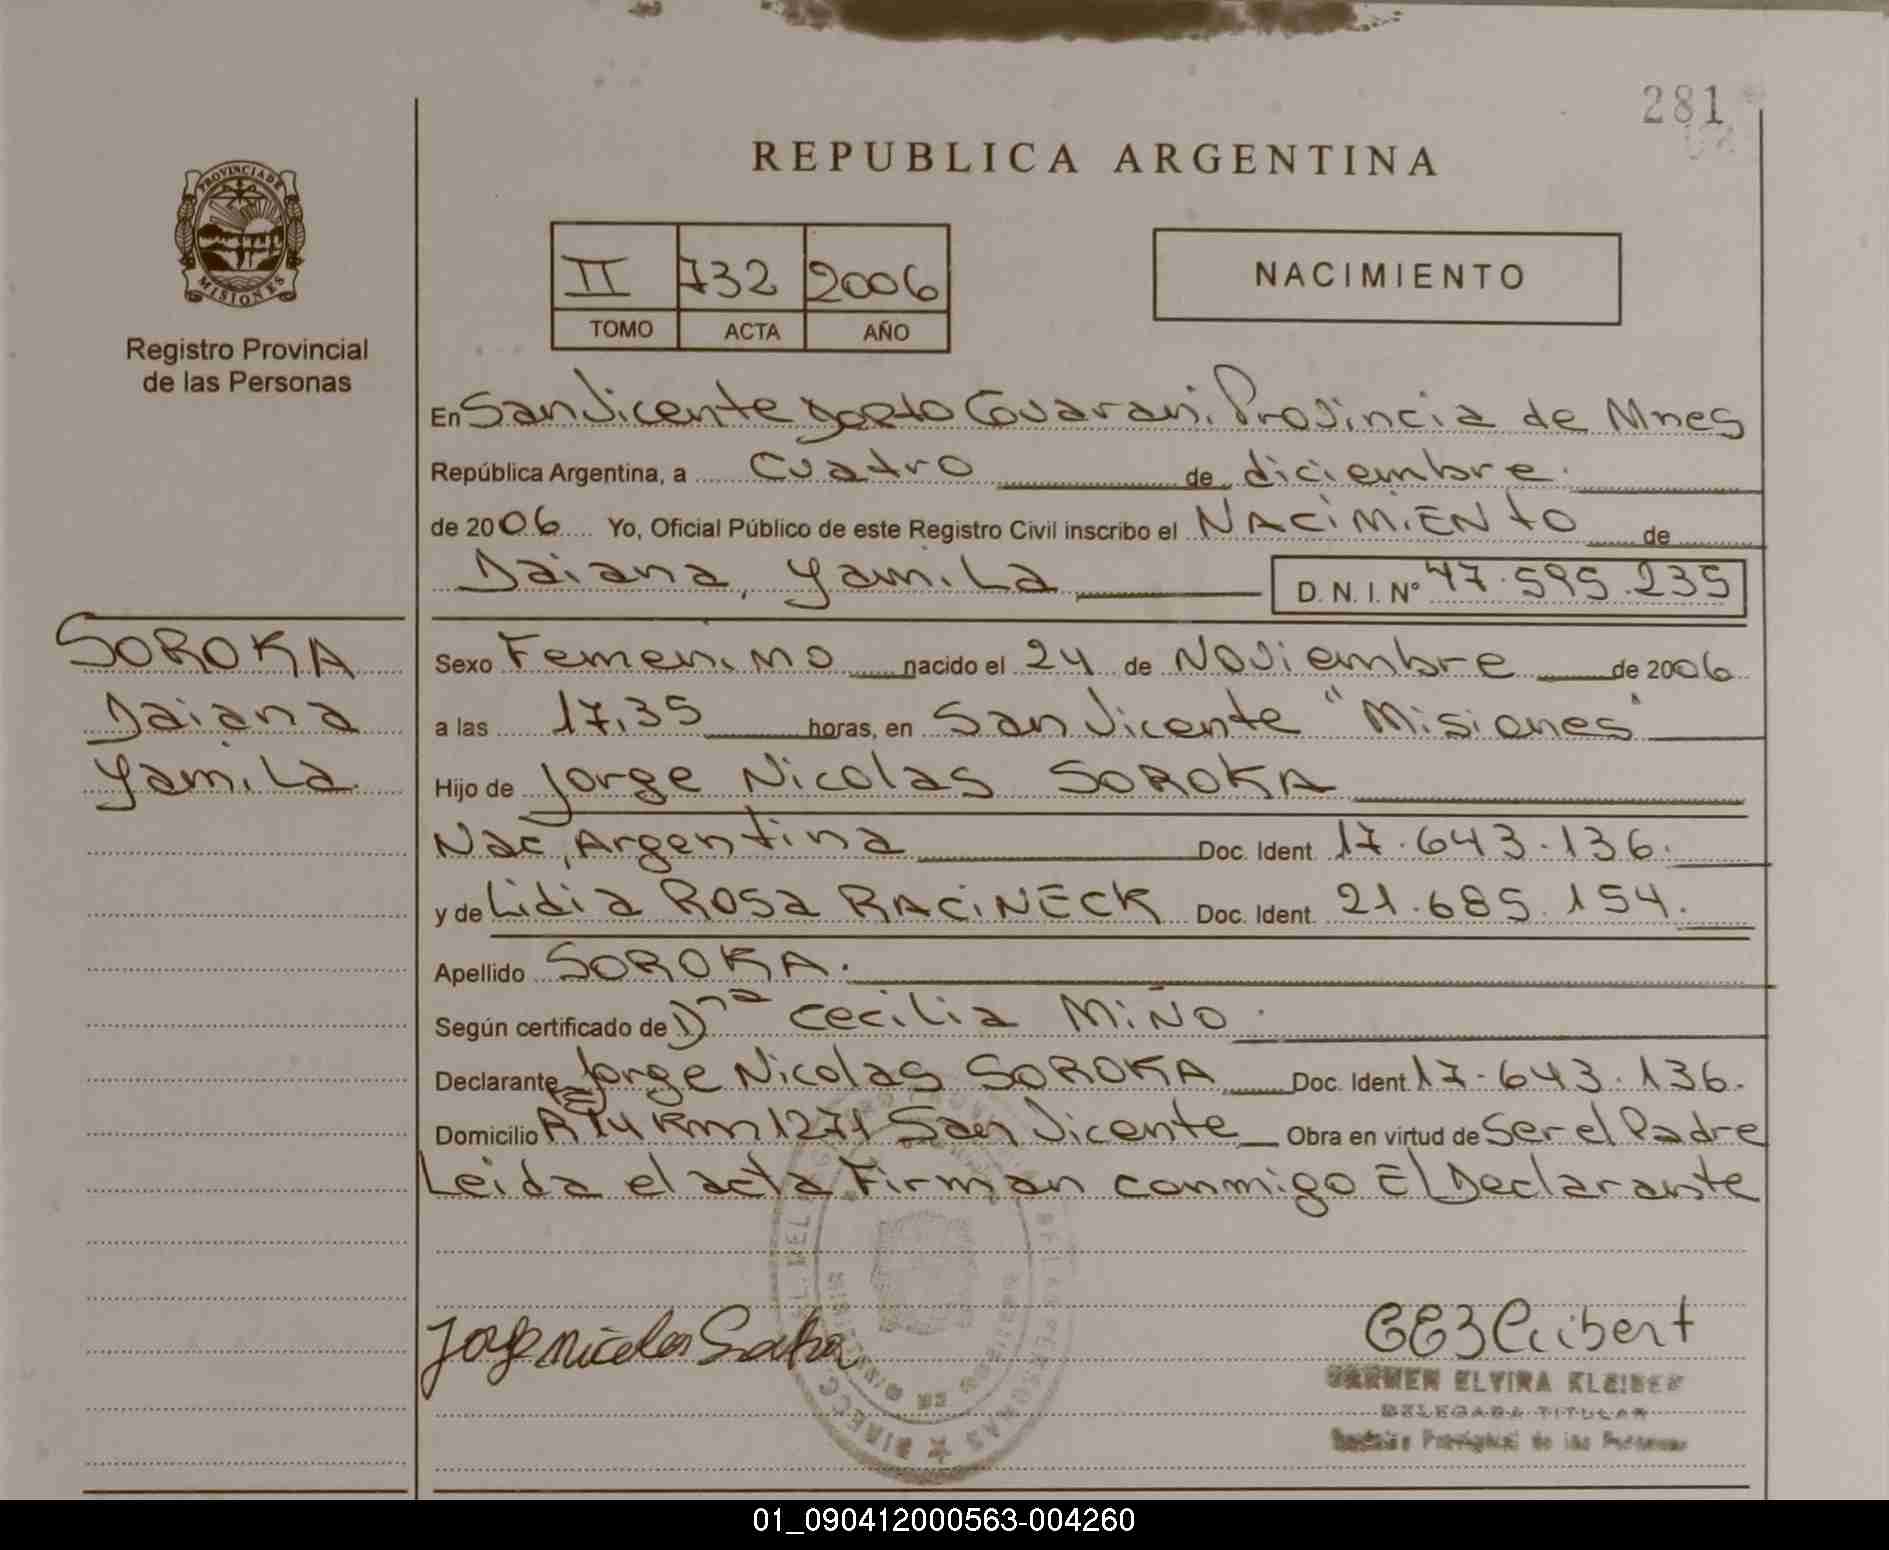 281
REPUBLICA ARGENTINA
PROVINCIA DE
MISIONES
Registro Provincial
de las Personas
II 732 2006
TOMO ACTA AÑO
NACIMIENTO
En San Vicente Dpto Guarani. Provincia de Mnes
República Argentina, a Cuatro de diciembre.
de 2006 Yo, Oficial Público de este Registro Civil inscribo el NACIMIENTO de
Daiana, Yamila D. N. I. Nº 47.595.235
SOROKA
Daiana
Yamila
Sexo Femenino nacido el 24 de Noviembre de 2006
a las 17,35 horas, en San Vicente "Misiones"
Hijo de Jorge Nicolas SOROKA
Nac, Argentina Doc. Ident. 17.643.136.
y de Lidia ROSA RACINECK Doc. Ident. 21.685.154.
Apellido SOROKA.
Según certificado de Dra Cecilia MIÑO.
Declarante Jorge Nicolas SOROKA Doc. Ident. 17.643.136.
Domicilio R 14 Km 1271 San Vicente Obra en virtud de Ser el Padre
Leida el acta Firman conmigo El Declarante
Jorge nicolas Soroka
CARMEN ELVIRA KLEIBER
DELEGADA TITULAR
Provincial de las Personas
01_090412000563-004260